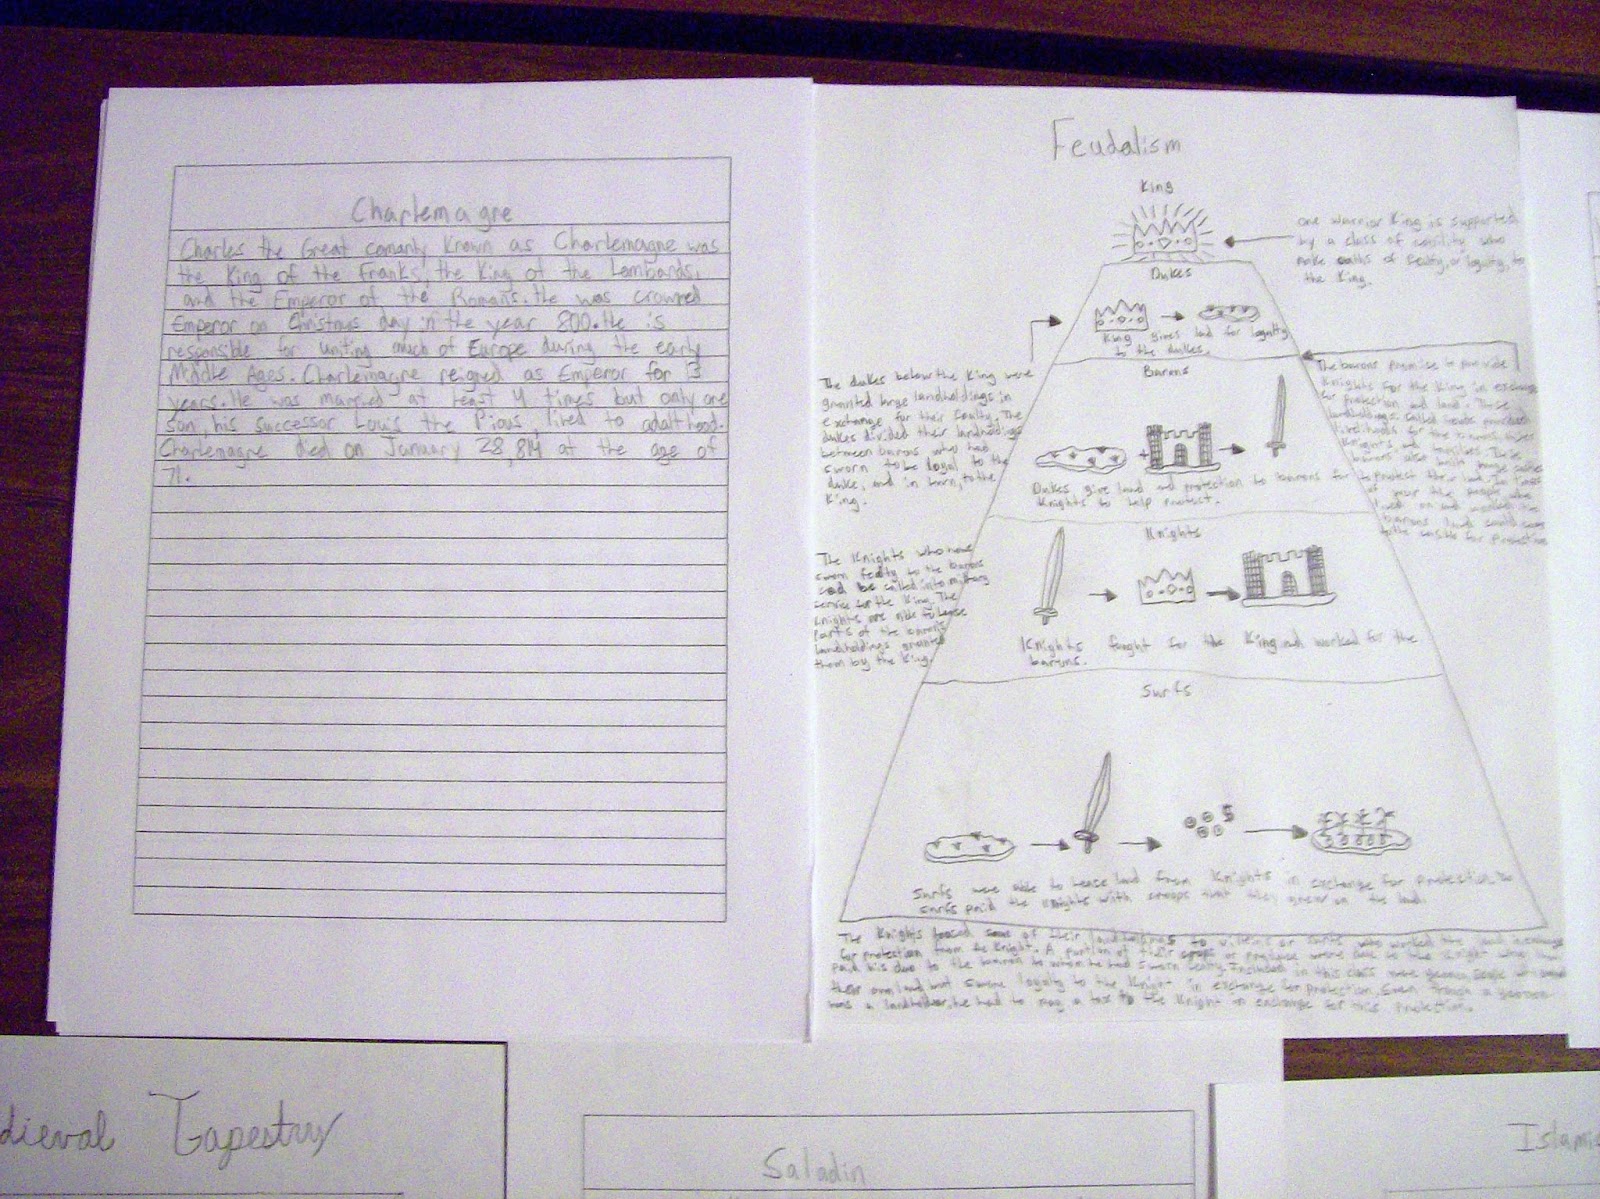 Charlemagne
Charles the Great comanly Known as Charlemagne was
the King of the Franks, the King of the Lombards,
and the Emperor of the Romans. He was crowned
Emperor on Christmas day in the year 800. He is
responsible for uniting much of Europe during the early
Middle Ages. Charlemagne reigned as Emperor for 13
years. He was married at least 4 times but only one
son, his successor Louis the Pious, lived to adulthood.
Charlemagne died on January 28, 814 at the age of
71.
Feudalism
King
one warrior King is supported
by a class of nobility who
make oaths of fealty, or loyalty, to
the King.
Dukes
King gives land for loyalty
to the dukes.
The dukes below the King were
granted large landholdings in
exchange for their fealty. The
dukes divided their landholdings
between barons who had
sworn to be loyal to the
duke, and in turn, to the
King.
Barons
The barons promise to provide
Knights for the King in exchange
for protection and land. These
landholdings called feuds provided
Dukes give land and protection to barons for
Knights to help protect.
to protect their land. In times
of war the people who
lived on and worked the
barons land could come
to the castle for protection
Knights
The Knights who have
sworn fealty to the barons
be called into military
service for the King. The
Knights are able to lease
parts of the barons
landholdings granted
them by the King.
Knights fought for the King and worked for the
barons.
Surfs
Surfs were able to lease land from Knights in exchange for protection. The
surfs paid the Knights with crops that they grew on the land.
The Knights leased some of their landholdings to villeins or surfs who worked the land in exchange
for protection from the Knight. A portion of their crops or produce were due to the Knight who
paid his due to the baron to whom he had sworn fealty. Included in this class were yeomen, people who owned
their own land but swore loyalty to the Knight in exchange for protection. Even though a yeoman
was a landholder, he had to pay a tax to the Knight in exchange for this protection.
dieval Tapestry
Saladin
Islamic